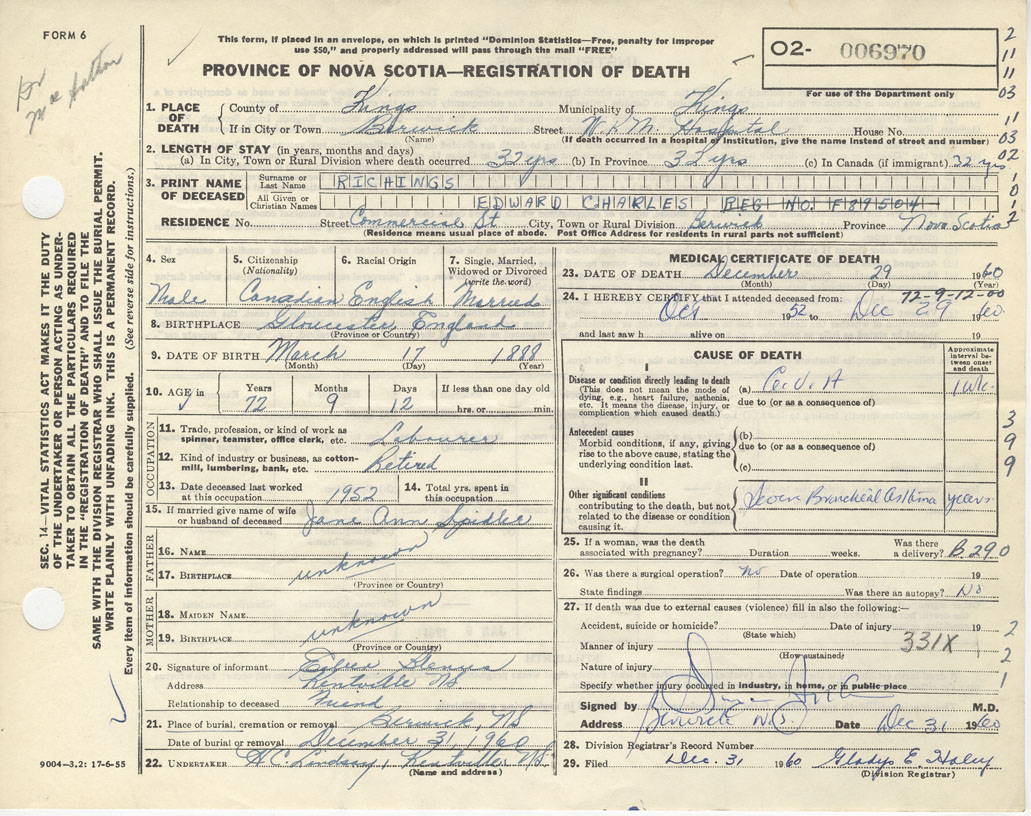 FORM 6
This form, if placed in an envelope, on which is printed "Dominion Statistics—Free, penalty for improper
use $50," and properly addressed will pass through the mail "FREE"
PROVINCE OF NOVA SCOTIA—REGISTRATION OF DEATH
O2- 006970
For use of the Department only
2
11
11
03
11
03
02
1. PLACE OF DEATH
County of Kings Municipality of Kings
If in City or Town Berwick Street W.K.M. Hospital House No.
(Name) (If death occurred in a hospital of Institution, give the name instead of street and number)
2. LENGTH OF STAY (in years, months and days)
(a) In City, Town or Rural Division where death occurred 32 yrs (b) In Province 32 yrs (c) In Canada (if immigrant) 32 yrs
3. PRINT NAME OF DECEASED
Surname or Last Name RICHINGS
All Given or Christian Names EDWARD CHARLES REG NO. F89504
RESIDENCE No. Street Commercial St City, Town or Rural Division Berwick Province Nova Scotia
(Residence means usual place of abode. Post Office Address for residents in rural parts not sufficient)
4. Sex Male
5. Citizenship (Nationality) Canadian
6. Racial Origin English
7. Single, Married, Widowed or Divorced (write the word) Married
8. BIRTHPLACE Gloucester England
(Province or Country)
9. DATE OF BIRTH March 17 1888
(Month) (Day) (Year)
10. AGE in Years 72 Months 9 Days 12 If less than one day old hrs. or min.
OCCUPATION
11. Trade, profession, or kind of work as spinner, teamster, office clerk, etc. Labourer
12. Kind of industry or business, as cotton-mill, lumbering, bank, etc. Retired
13. Date deceased last worked at this occupation 1952
14. Total yrs. spent in this occupation
15. If married give name of wife or husband of deceased Jane Ann
FATHER
16. NAME
unknown
17. BIRTHPLACE
(Province or Country)
MOTHER
18. MAIDEN NAME
unknown
19. BIRTHPLACE
(Province or Country)
20. Signature of informant
Address Kentville NS
Relationship to deceased friend
21. Place of burial, cremation or removal Berwick, NS
Date of burial or removal December 31, 1960
22. UNDERTAKER W.C. Lindsay, Kentville NS
(Name and address)
MEDICAL CERTIFICATE OF DEATH
23. DATE OF DEATH December 29 1960
(Month) (Day) (Year)
72-9-12-00
24. I HEREBY CERTIFY that I attended deceased from:
Oct 1952 to Dec 29 1960
and last saw h alive on 19
CAUSE OF DEATH
Approximate interval between onset and death
I
Disease or condition directly leading to death
(This does not mean the mode of dying, e.g., heart failure, asthenia, etc. It means the disease, injury, or complication which caused death.)
(a) C.V.A 1 wk.
due to (or as a consequence of)
Antecedent causes
Morbid conditions, if any, giving rise to the above cause, stating the underlying condition last.
(b)
due to (or as a consequence of)
(c)
3
9
9
II
Other significant conditions contributing to the death, but not related to the disease or condition causing it.
Severe Bronchial Asthma years
25. If a woman, was the death associated with pregnancy? Duration weeks. Was there a delivery? B.290
26. Was there a surgical operation? No Date of operation 19
State findings Was there an autopsy? No
27. If death was due to external causes (violence) fill in also the following:—
Accident, suicide or homicide? Date of injury 19
(State which)
Manner of injury 331X
(How sustained)
Nature of injury
Specify whether injury occurred in industry, in home, or in public place
2
2
1
Signed by M.D.
Address Berwick N.S. Date Dec 31 1960
28. Division Registrar's Record Number
29. Filed Dec. 31 1960 Gladys E. Haley
(Division Registrar)
9004—3.2: 17-6-55
SEC. 14—VITAL STATISTICS ACT MAKES IT THE DUTY
OF THE UNDERTAKER OR PERSON ACTING AS UNDER-
TAKER TO OBTAIN ALL THE PARTICULARS REQUIRED
IN THE "REGISTRATION OF DEATH" AND TO FILE THE
SAME WITH THE DIVISION REGISTRAR WHO SHALL ISSUE THE BURIAL PERMIT.
WRITE PLAINLY WITH UNFADING INK. THIS IS A PERMANENT RECORD.
Every item of information should be carefully supplied. (See reverse side for instructions.)